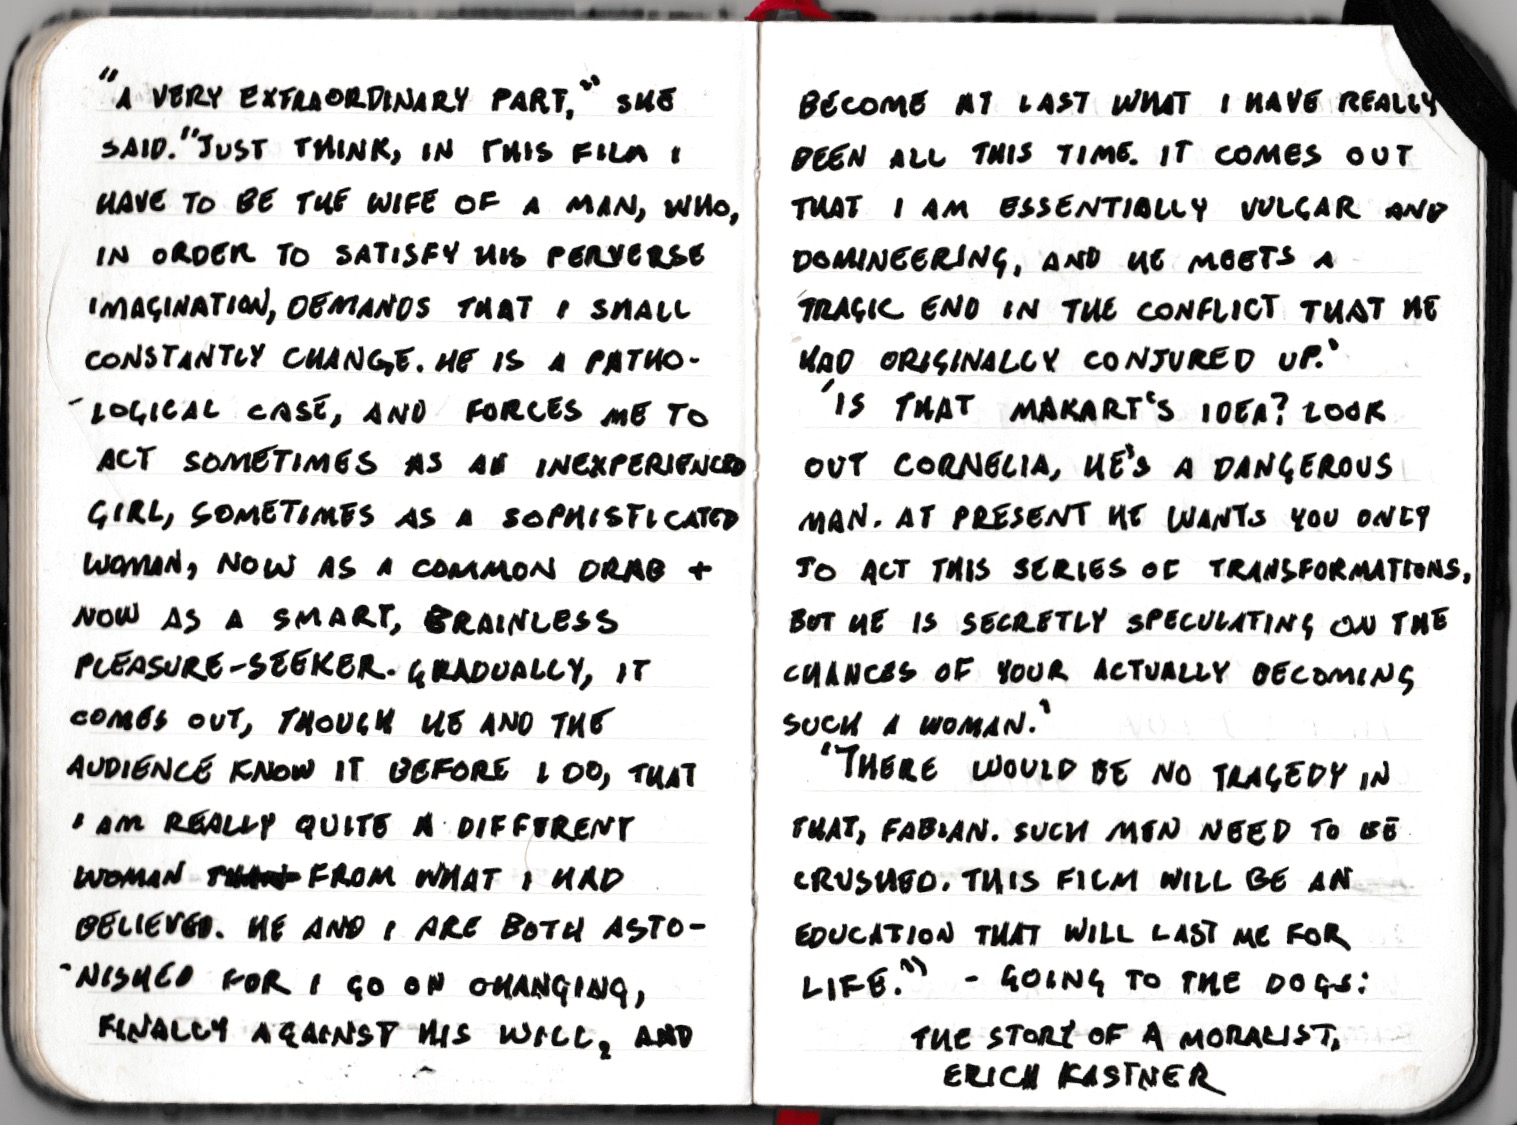 "A VERY EXTRAORDINARY PART," SHE
SAID. "JUST THINK, IN THIS FILM I
HAVE TO BE THE WIFE OF A MAN, WHO,
IN ORDER TO SATISFY HIS PERVERSE
IMAGINATION, DEMANDS THAT I SHALL
CONSTANTLY CHANGE. HE IS A PATHO-
-LOGICAL CASE, AND FORCES ME TO
ACT SOMETIMES AS AN INEXPERIENCED
GIRL, SOMETIMES AS A SOPHISTICATED
WOMAN, NOW AS A COMMON DRAB +
NOW AS A SMART, BRAINLESS
PLEASURE-SEEKER. GRADUALLY, IT
COMES OUT, THOUGH HE AND THE
AUDIENCE KNOW IT BEFORE I DO, THAT
I AM REALLY QUITE A DIFFERENT
WOMAN THAN FROM WHAT I HAD
BELIEVED. HE AND I ARE BOTH ASTO-
-NISHED FOR I GO ON CHANGING,
FINALLY AGAINST HIS WILL, AND
BECOME AT LAST WHAT I HAVE REALLY
BEEN ALL THIS TIME. IT COMES OUT
THAT I AM ESSENTIALLY VULGAR AND
DOMINEERING, AND HE MEETS A
TRAGIC END IN THE CONFLICT THAT HE
HAD ORIGINALLY CONJURED UP.'
'IS THAT MAKART'S IDEA? LOOK
OUT CORNELIA, HE'S A DANGEROUS
MAN. AT PRESENT HE WANTS YOU ONLY
TO ACT THIS SERIES OF TRANSFORMATIONS,
BUT HE IS SECRETLY SPECULATING ON THE
CHANCES OF YOUR ACTUALLY BECOMING
SUCH A WOMAN.'
'THERE WOULD BE NO TRAGEDY IN
THAT, FABIAN. SUCH MEN NEED TO BE
CRUSHED. THIS FILM WILL BE AN
EDUCATION THAT WILL LAST ME FOR
LIFE.'" - GOING TO THE DOGS:
THE STORY OF A MORALIST,
ERICH KASTNER